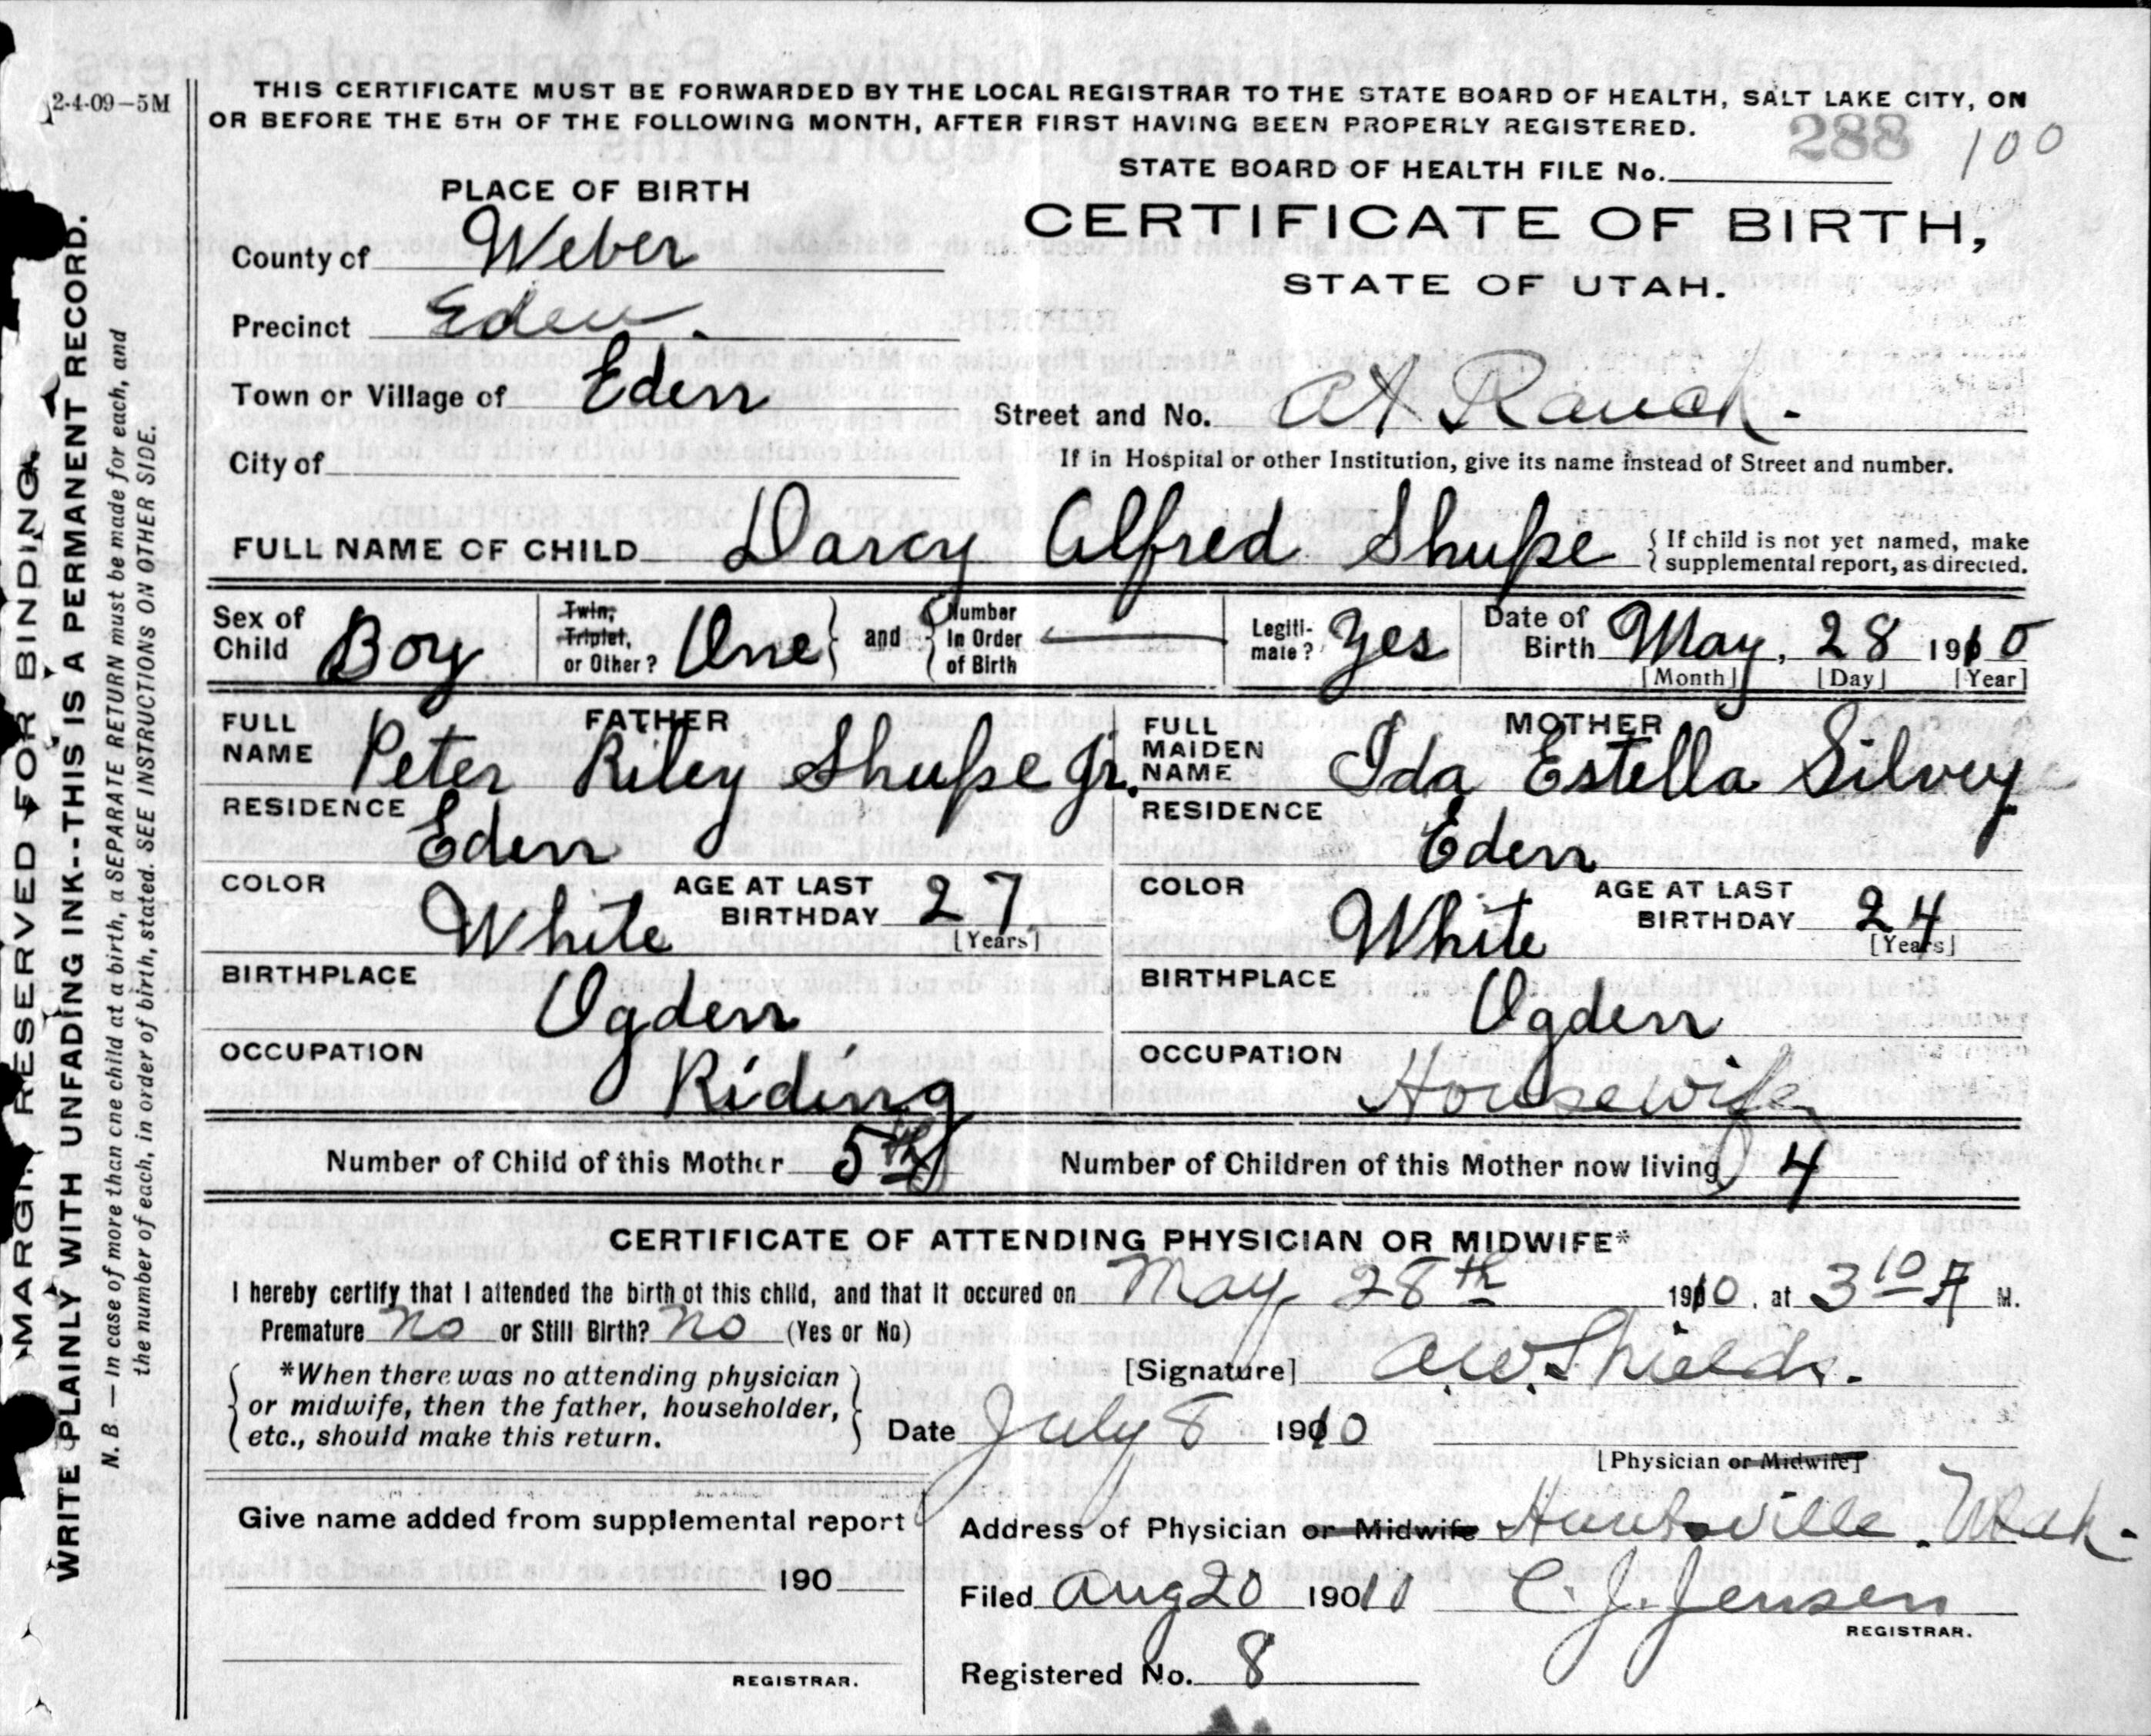 2-4-09-5M
THIS CERTIFICATE MUST BE FORWARDED BY THE LOCAL REGISTRAR TO THE STATE BOARD OF HEALTH, SALT LAKE CITY, ON
OR BEFORE THE 5TH OF THE FOLLOWING MONTH, AFTER FIRST HAVING BEEN PROPERLY REGISTERED.
288 100
STATE BOARD OF HEALTH FILE No.
PLACE OF BIRTH
CERTIFICATE OF BIRTH,
STATE OF UTAH.
County of Weber
Precinct Eden.
Town or Village of Eden
Street and No. At Ranch.
City of
If in Hospital or other Institution, give its name instead of Street and number.
FULL NAME OF CHILD Darcy Alfred Shupe
{ If child is not yet named, make
supplemental report, as directed.
Sex of Child Boy
Twin, Triplet, or Other? One } and { Number In Order of Birth
Legiti-mate? Yes
Date of Birth May, 28 1910
[Month] [Day] [Year]
FATHER
FULL NAME Peter Riley Shupe Jr.
MOTHER
FULL MAIDEN NAME Ida Estella Silvey
RESIDENCE Eden
RESIDENCE Eden
COLOR White
AGE AT LAST BIRTHDAY 27 [Years]
COLOR White
AGE AT LAST BIRTHDAY 24 [Years]
BIRTHPLACE Ogden
BIRTHPLACE Ogden
OCCUPATION Riding
OCCUPATION Housewife
Number of Child of this Mother 5th
Number of Children of this Mother now living 4
CERTIFICATE OF ATTENDING PHYSICIAN OR MIDWIFE*
I hereby certify that I attended the birth of this child, and that it occured on May 28th 1910, at 3 10 A M.
Premature No or Still Birth? No (Yes or No)
[Signature] A.W. Shields.
{ *When there was no attending physician
or midwife, then the father, householder,
etc., should make this return. }
Date July 8 1910
[Physician or Midwife]
Give name added from supplemental report
190
REGISTRAR.
Address of Physician or Midwife Huntsville, Utah.
Filed Aug 20 19010 C. J. Jensen
REGISTRAR.
Registered No. 8
MARGIN RESERVED FOR BINDING.
WRITE PLAINLY WITH UNFADING INK--THIS IS A PERMANENT RECORD.
N. B.—In case of more than one child at a birth, a SEPARATE RETURN must be made for each, and
the number of each, in order of birth, stated. SEE INSTRUCTIONS ON OTHER SIDE.